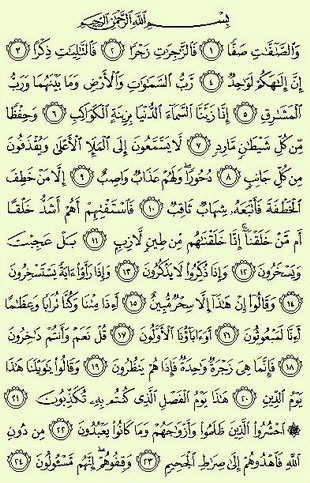 بِسْمِ اللَّهِ الرَّحْمَٰنِ الرَّحِيمِ
وَالصَّٰٓفَّٰتِ صَفًّا ١ فَالزَّٰجِرَٰتِ زَجْرًا ٢ فَالتَّٰلِيَٰتِ ذِكْرًا ٣
إِنَّ إِلَٰهَكُمْ لَوَٰحِدٌ ٤ رَّبُّ السَّمَٰوَٰتِ وَالْأَرْضِ وَمَا بَيْنَهُمَا وَرَبُّ
الْمَشَٰرِقِ ٥ إِنَّا زَيَّنَّا السَّمَآءَ الدُّنْيَا بِزِينَةٍ الْكَوَاكِبِ ٦ وَحِفْظًا
مِّن كُلِّ شَيْطَٰنٍ مَّارِدٍ ٧ لَّا يَسَّمَّعُونَ إِلَى الْمَلَإِ الْأَعْلَىٰ وَيُقْذَفُونَ
مِن كُلِّ جَانِبٍ ٨ دُحُورًا ۖ وَلَهُمْ عَذَابٌ وَاصِبٌ ٩ إِلَّا مَنْ خَطِفَ
الْخَطْفَةَ فَأَتْبَعَهُۥ شِهَابٌ ثَاقِبٌ ١٠ فَاسْتَفْتِهِمْ أَهُمْ أَشَدُّ خَلْقًا
أَم مَّنْ خَلَقْنَآ ۚ إِنَّا خَلَقْنَٰهُم مِّن طِينٍ لَّازِبٍ ١١ بَلْ عَجِبْتَ
وَيَسْخَرُونَ ١٢ وَإِذَا ذُكِّرُوا۟ لَا يَذْكُرُونَ ١٣ وَإِذَا رَأَوْا۟ ءَايَةً يَسْتَسْخِرُونَ
١٤ وَقَالُوٓا۟ إِنْ هَٰذَآ إِلَّا سِحْرٌ مُّبِينٌ ١٥ أَءِذَا مِتْنَا وَكُنَّا تُرَابًا وَعِظَٰمًا
أَءِنَّا لَمَبْعُوثُونَ ١٦ أَوَءَابَآؤُنَا الْأَوَّلُونَ ١٧ قُلْ نَعَمْ وَأَنتُمْ دَٰخِرُونَ
١٨ فَإِنَّمَا هِىَ زَجْرَةٌ وَٰحِدَةٌ فَإِذَا هُمْ يَنظُرُونَ ١٩ وَقَالُوا۟ يَٰوَيْلَنَا هَٰذَا
يَوْمُ الدِّينِ ٢٠ هَٰذَا يَوْمُ الْفَصْلِ الَّذِى كُنتُم بِهِۦ تُكَذِّبُونَ ٢١
۞ احْشُرُوا۟ الَّذِينَ ظَلَمُوا۟ وَأَزْوَٰجَهُمْ وَمَا كَانُوا۟ يَعْبُدُونَ ٢٢ مِن دُونِ
اللَّهِ فَاهْدُوهُمْ إِلَىٰ صِرَٰطِ الْجَحِيمِ ٢٣ وَقِفُوهُمْ ۖ إِنَّهُم مَّسْـُٔولُونَ ٢٤